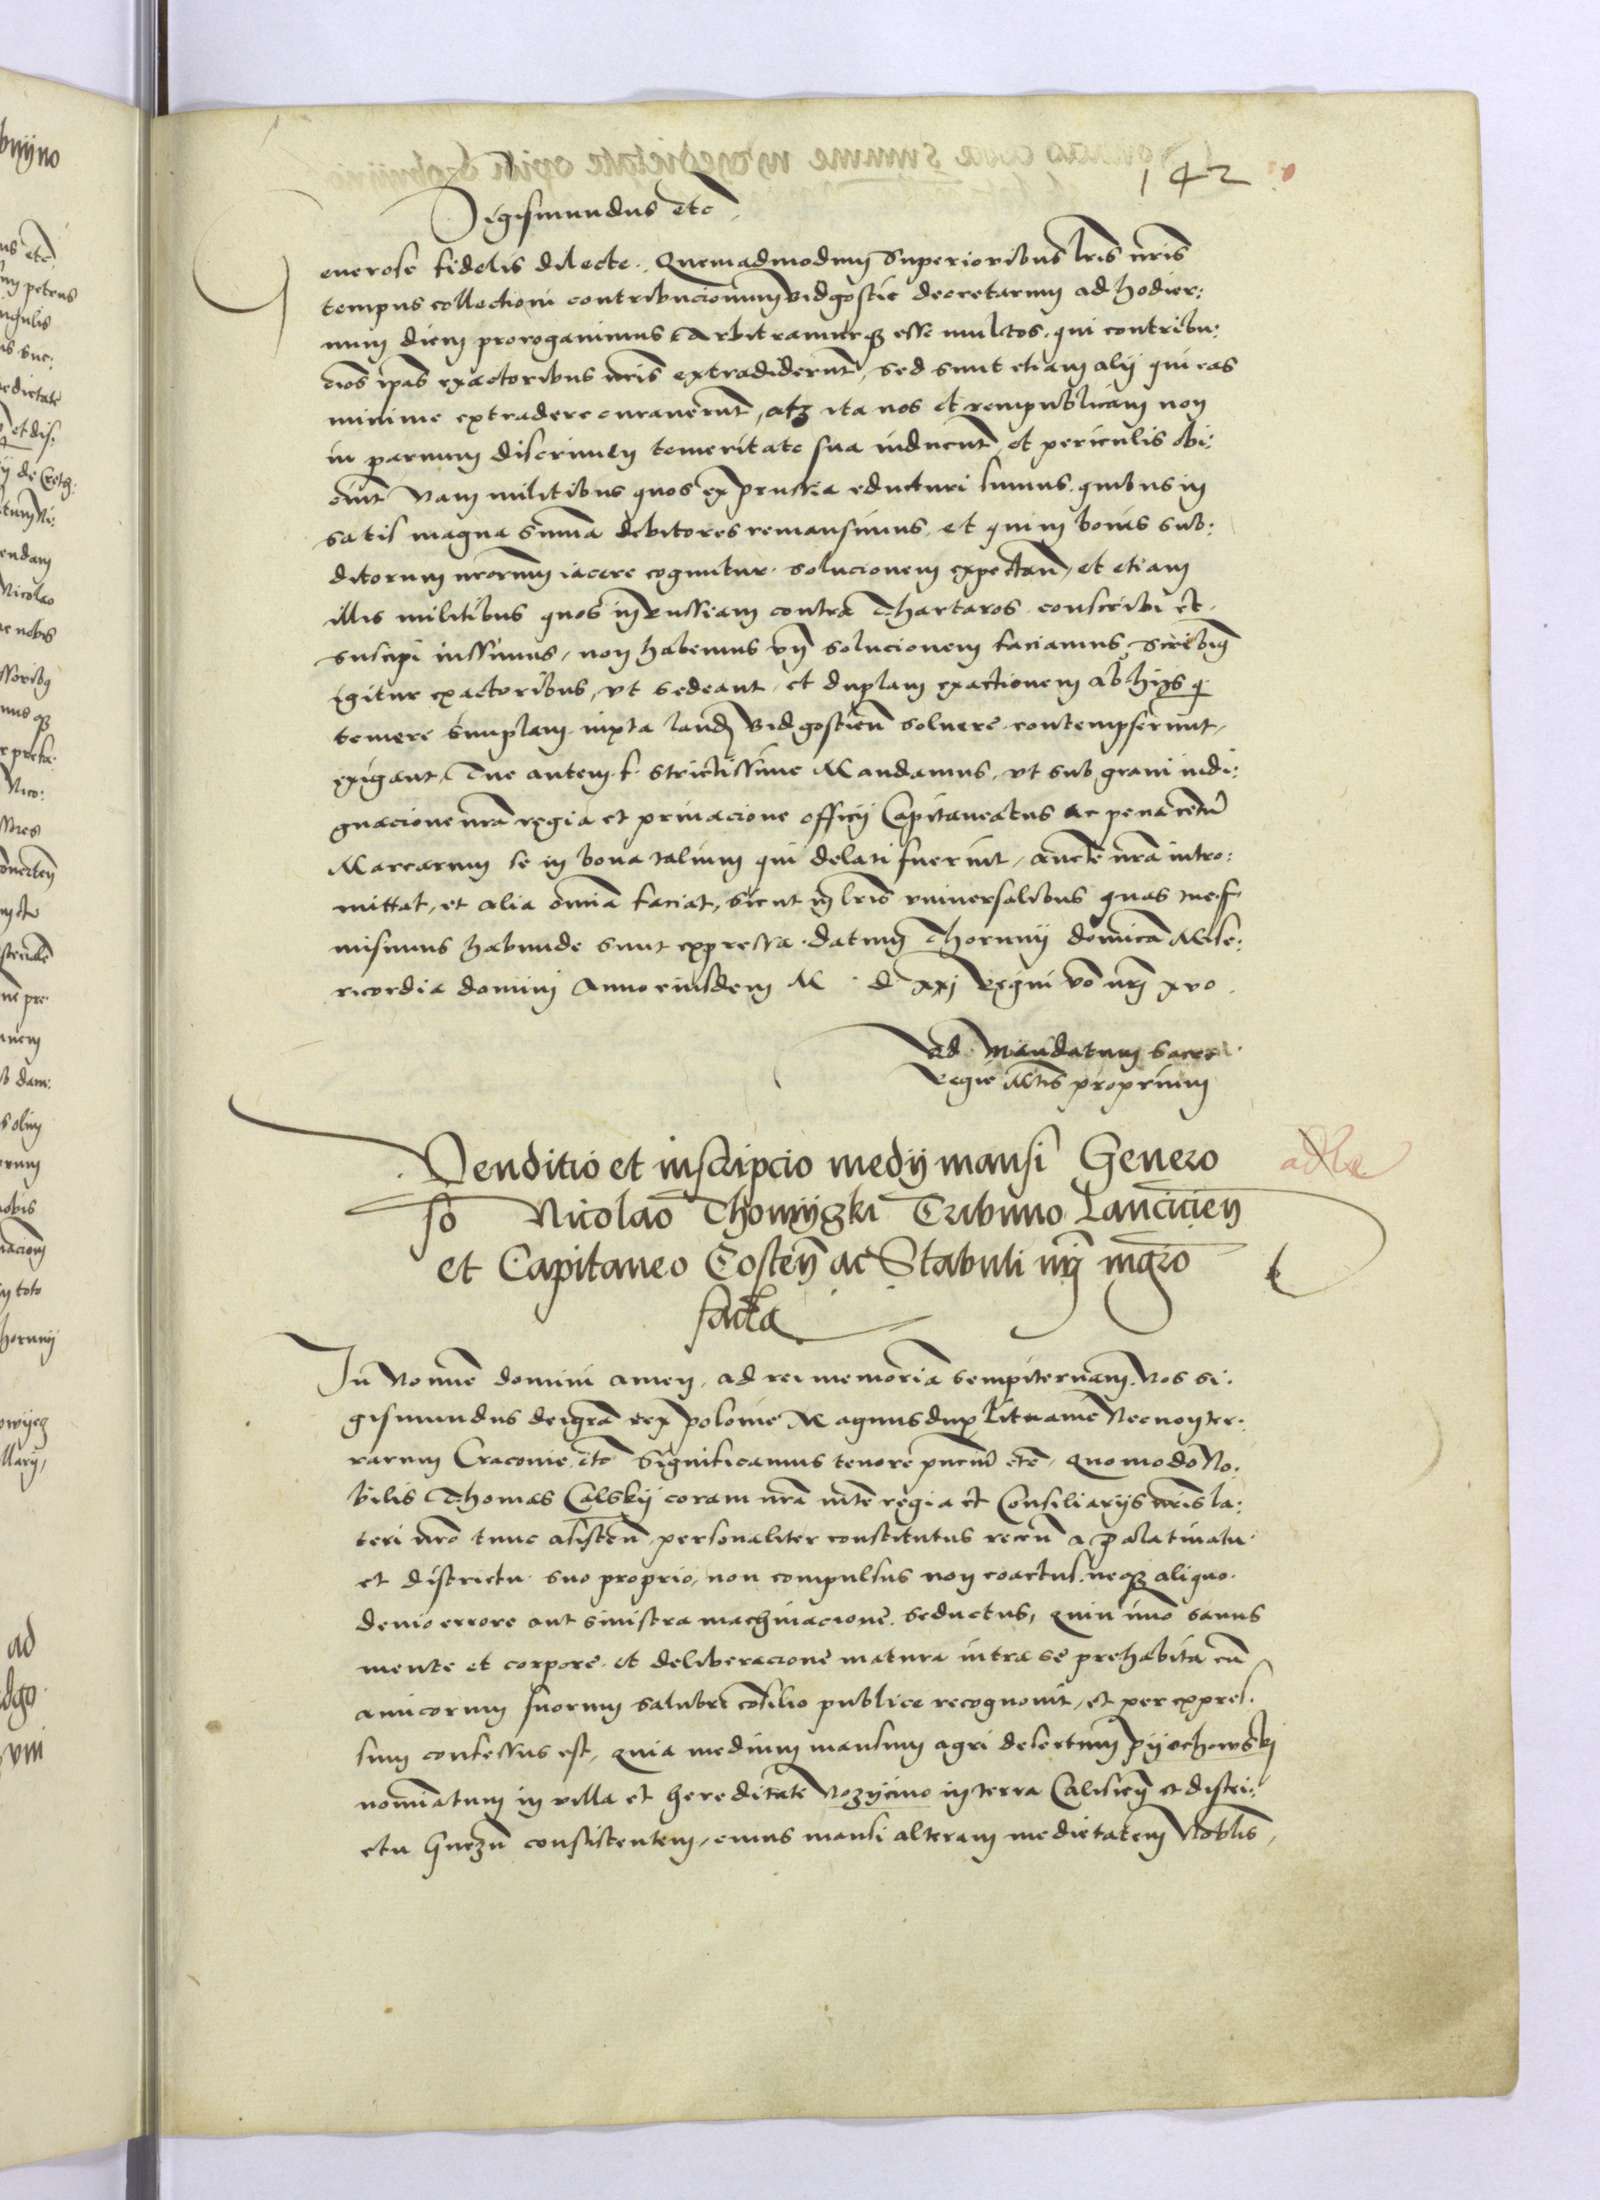 142
Sigismundus etc
Generose fidelis dilecte. Quemadmodum Superioribus lris nris
tempus collectioni contribucionum Bidgostie decretarum ad hodier:
num diem prorogavimus Arbitramurqz esse multos. qui contribu:
cios ipas exactoribus nris extradiderunt, sed sunt etiam alij qui eas
minime extradere curaverunt, atqz ita nos et rempublicam non
in parvum discrimen temeritate sua inducunt, et periculis obi:
ciunt Nam militibus quos ex prussia educturi sumus. quibus in
satis magna summa debitores remansimus, et qui in bonis sub:
ditorum nrorum iacere coguntur. solucionem expectan, et etiam
illis militibus quos in russiam contra Thartaros conscribi et
suscipi iussimus, non habemus vn solucionem faciamus, Scribim
Igitur exactoribus, vt sedeant, et duplam exactionem ab hijs q
temere simplam iuxta laud Bidgostien solvere contempserunt,
exigant, Tue autem f. strictissime Mandamus, vt sub gravi indi:
gnacione nra regia et privacione officij Capitaneatus ac pena centu
Marcarum se in bona talium qui delati fuerint, aucte nra intro:
mittat, et alia omnia faciat, sicut in lris vniversalibus quas tue f
misimus habunde sunt expressa. datum Thorunij domica Mise:
ricordia domini Anno eiusdem M d xxj Regni vo nri xvo.
ad Mandatum Sacre
Regie Mtis proprium
Venditio et inscripcio medij mansi Genero
so Nicolao Thomyczki Tribuno Lancicien
et Capitaneo Costen ac Stabuli nri mgro
facta
In Nomine domini amen, ad rei memoria sempiternam. Nos Si:
gismundus dei gra rex polonie Magnus dux Lituanie Necnon ter:
rarum Cracovie etc Significamus tenore pncium etc, Quomodo No:
bilis Thomas Calskij coram nra mte regia et Consiliarijs nris la:
teri nro tunc asisten, personaliter constitutus recen a palatinatu
et districtu suo proprio, non compulsus non coactus. neqz aliquo
devio errore aut sinistra machinacione seductus, quin imo sanus
mente et corpore et deliberacione matura intra se prehabita cu
amicorum suorum salubri cosilio publice recognovit, et per expres:
sum confessus est, quia medium mansum agri desertum pyechowskj
nominatum in villa et hereditate Nozyczino in terra Calisien et distri:
ctu Gnezn consistentem, cuius mansi alteram medietatem Noblis,